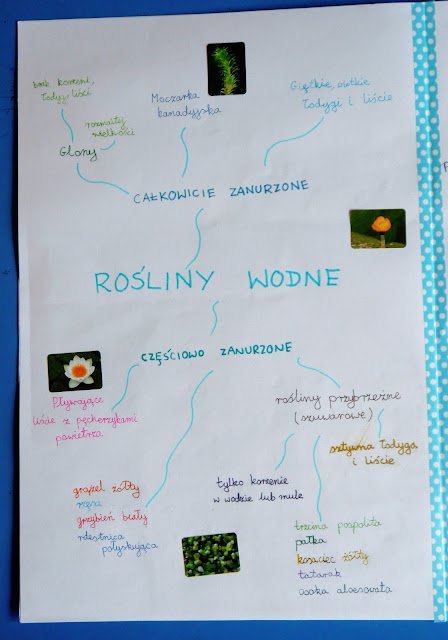 brak korzeni,
łodyg, liści
rozmaitej
wielkości
Glony
Moczarka
kanadyjska
Giętkie, wiotkie
łodygi i liście
CAŁKOWICIE ZANURZONE
ROŚLINY WODNE
CZĘŚCIOWO ZANURZONE
Pływające
liście z pęcherzykami
powietrza
rośliny przybrzeżne
(szuwarowe)
sztywna łodyga
i liście
grążel żółty
rzęsa
grzybień biały
rdestnica
połyskująca
tylko korzenie
w wodzie lub mule
trzcina pospolita
pałka
kosaciec żółty
tatarak
osoka aloesowata